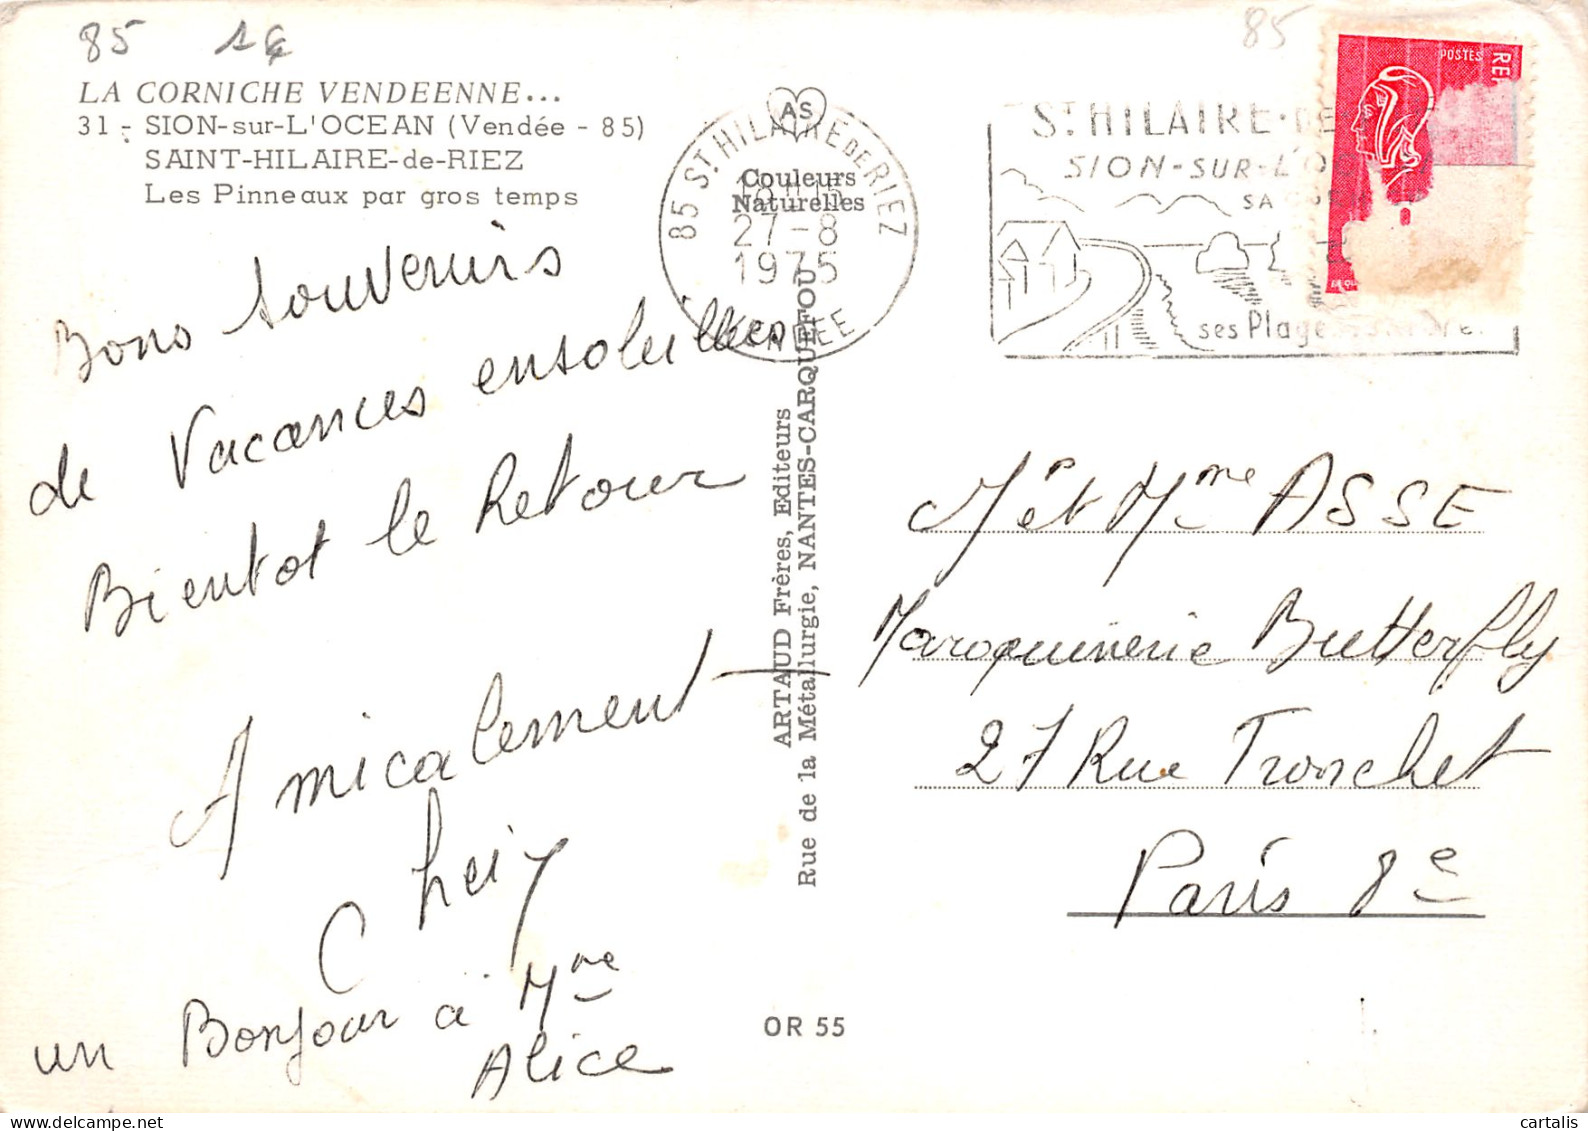 85 1€
85
LA CORNICHE VENDEENNE...
31 - SION-sur-L'OCEAN (Vendée - 85)
SAINT-HILAIRE-de-RIEZ
Les Pinneaux par gros temps
Bons souvenirs
de Vacances ensoleillées
Bientot le Retour
Amicalement
un Bonjour à Mme
Alice
AS
Couleurs
Naturelles
85 ST HILAIRE DE RIEZ
18H15
27-8
1975
VENDEE
ARTAUD Frères, Editeurs
Rue de la Métallurgie, NANTES-CARQUEFOU
OR 55
ST HILAIRE-DE
SION-SUR-L'O
SA
ses Plages
POSTES
M et Mme ASSE
Maroquinerie Butterfly
27 Rue Tronchet
Paris 8e
cartalis
www.delcampe.net